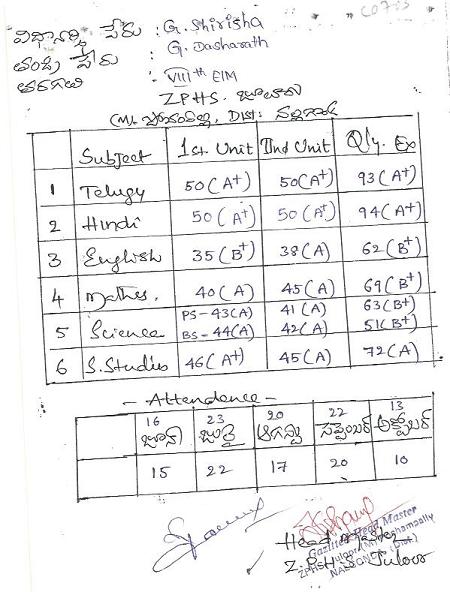 C0703
విద్యార్థి పేరు : G. Shirisha
తండ్రి పేరు : G. Dasharath
తరగతి : VIIIth E/M
ZPHS.
DIST:
Subject 1st. Unit IInd Unit Qly. Ex
1 Telugu 50(A+) 50(A+) 93(A+)
2 Hindi 50(A+) 50(A+) 94(A+)
3 English 35(B+) 38(A) 62(B+)
4 Mathes. 40(A) 45(A) 69(B+)
5 Science PS-43(A) 41(A) 63(B+)
BS-44(A) 42(A) 51(B+)
6 S.Studies 46(A+) 45(A) 72(A)
- Attendence -
16 23 20 22 13
జూన్ జులై ఆగస్టు సెప్టెంబర్ అక్టోబర్
15 22 17 20 10
Head Master
Gazetted Head Master
NALGONDA (Dist)
Z.P.H.S